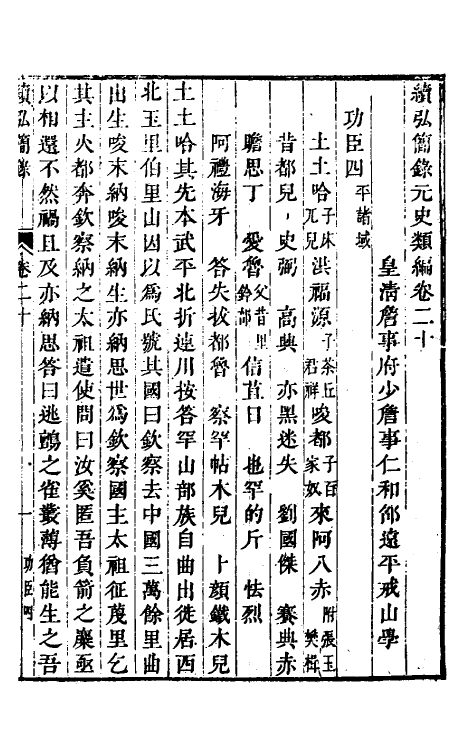 續弘簡錄元史類編卷二十
皇淸詹事府少詹事仁和邵遠平戒山學
功臣四平諸域
土土哈子床兀兒 洪福源子茶丘君祥 唆都子百家奴 來阿八赤附張玉樊楫
昔都兒 史弼 高興 亦黑迷失 劉國傑 賽典赤
瞻思丁 愛魯父昔里鈐部 信苴日 也罕的斤 怯烈
阿禮海牙 答失拔都魯 察罕帖木兒 卜顏鐵木兒
土土哈其先本武平北折連川按答罕山部族自曲出徙居西
北玉里伯里山因以爲氏號其國曰欽察去中國三萬餘里曲
出生唆末納唆末納生亦納思世爲欽察國主太祖征蔑里乞
其主火都奔欽察納之太祖遣使問曰汝奚匿吾負箭之麋亟
以相還不然禍且及亦納思答曰逃鸇之雀叢薄猶能生之吾
續弘簡錄 卷二十 一 功臣四